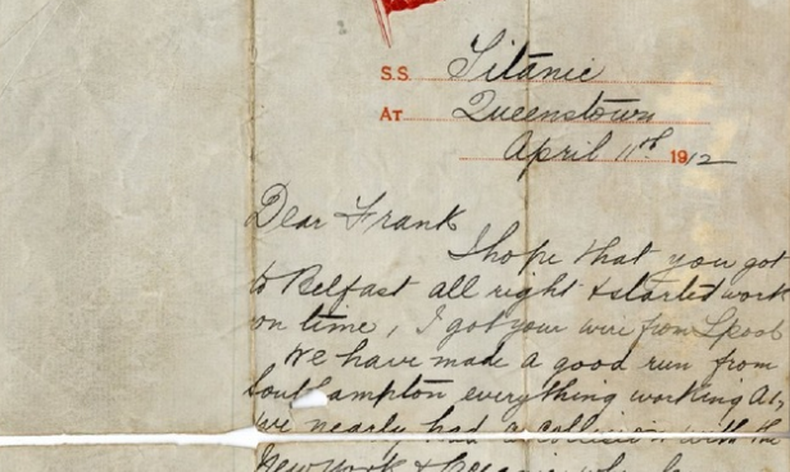 S.S. Titanic
At Queenstown
April 11th 1912
Dear Frank
I hope that you got
to Belfast all right & started work
on time, I got your wire from Lpool
We have made a good run from
Southampton everything working A1,
we nearly had a collision with the
New York & Oceanic when